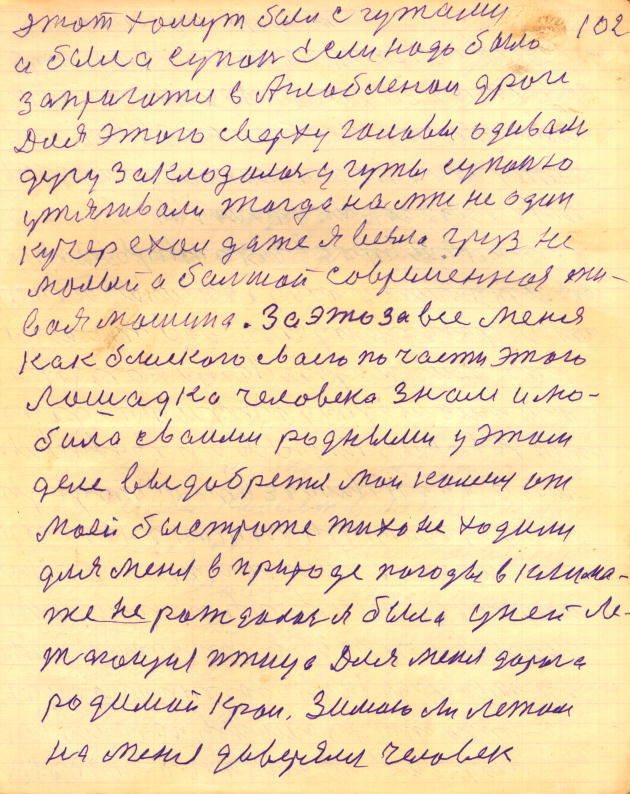 этот хомут был с гужами 102
а была супонь Если надо было
запрогати в Аглобленой дрои
Для этого сверху головы одевали
дугу Заклодалося у гужы супоню
утягивали тогда на мне не один
кучер ехал даже я везла груз не
молый а балшой современная жи-
вая мошина. За это за все меня
как близкого своего по части этого
лошадка человека знал и лю-
била своими родными у этом
деле выдобретя мои колеи от
моей быстроте тихо не ходили
для меня в природе погоды в клима-
те не рождалося я была у ней ле-
тающуя птица Для меня дорога
родимой край. Зимою ли летом
на меня доверяли человек